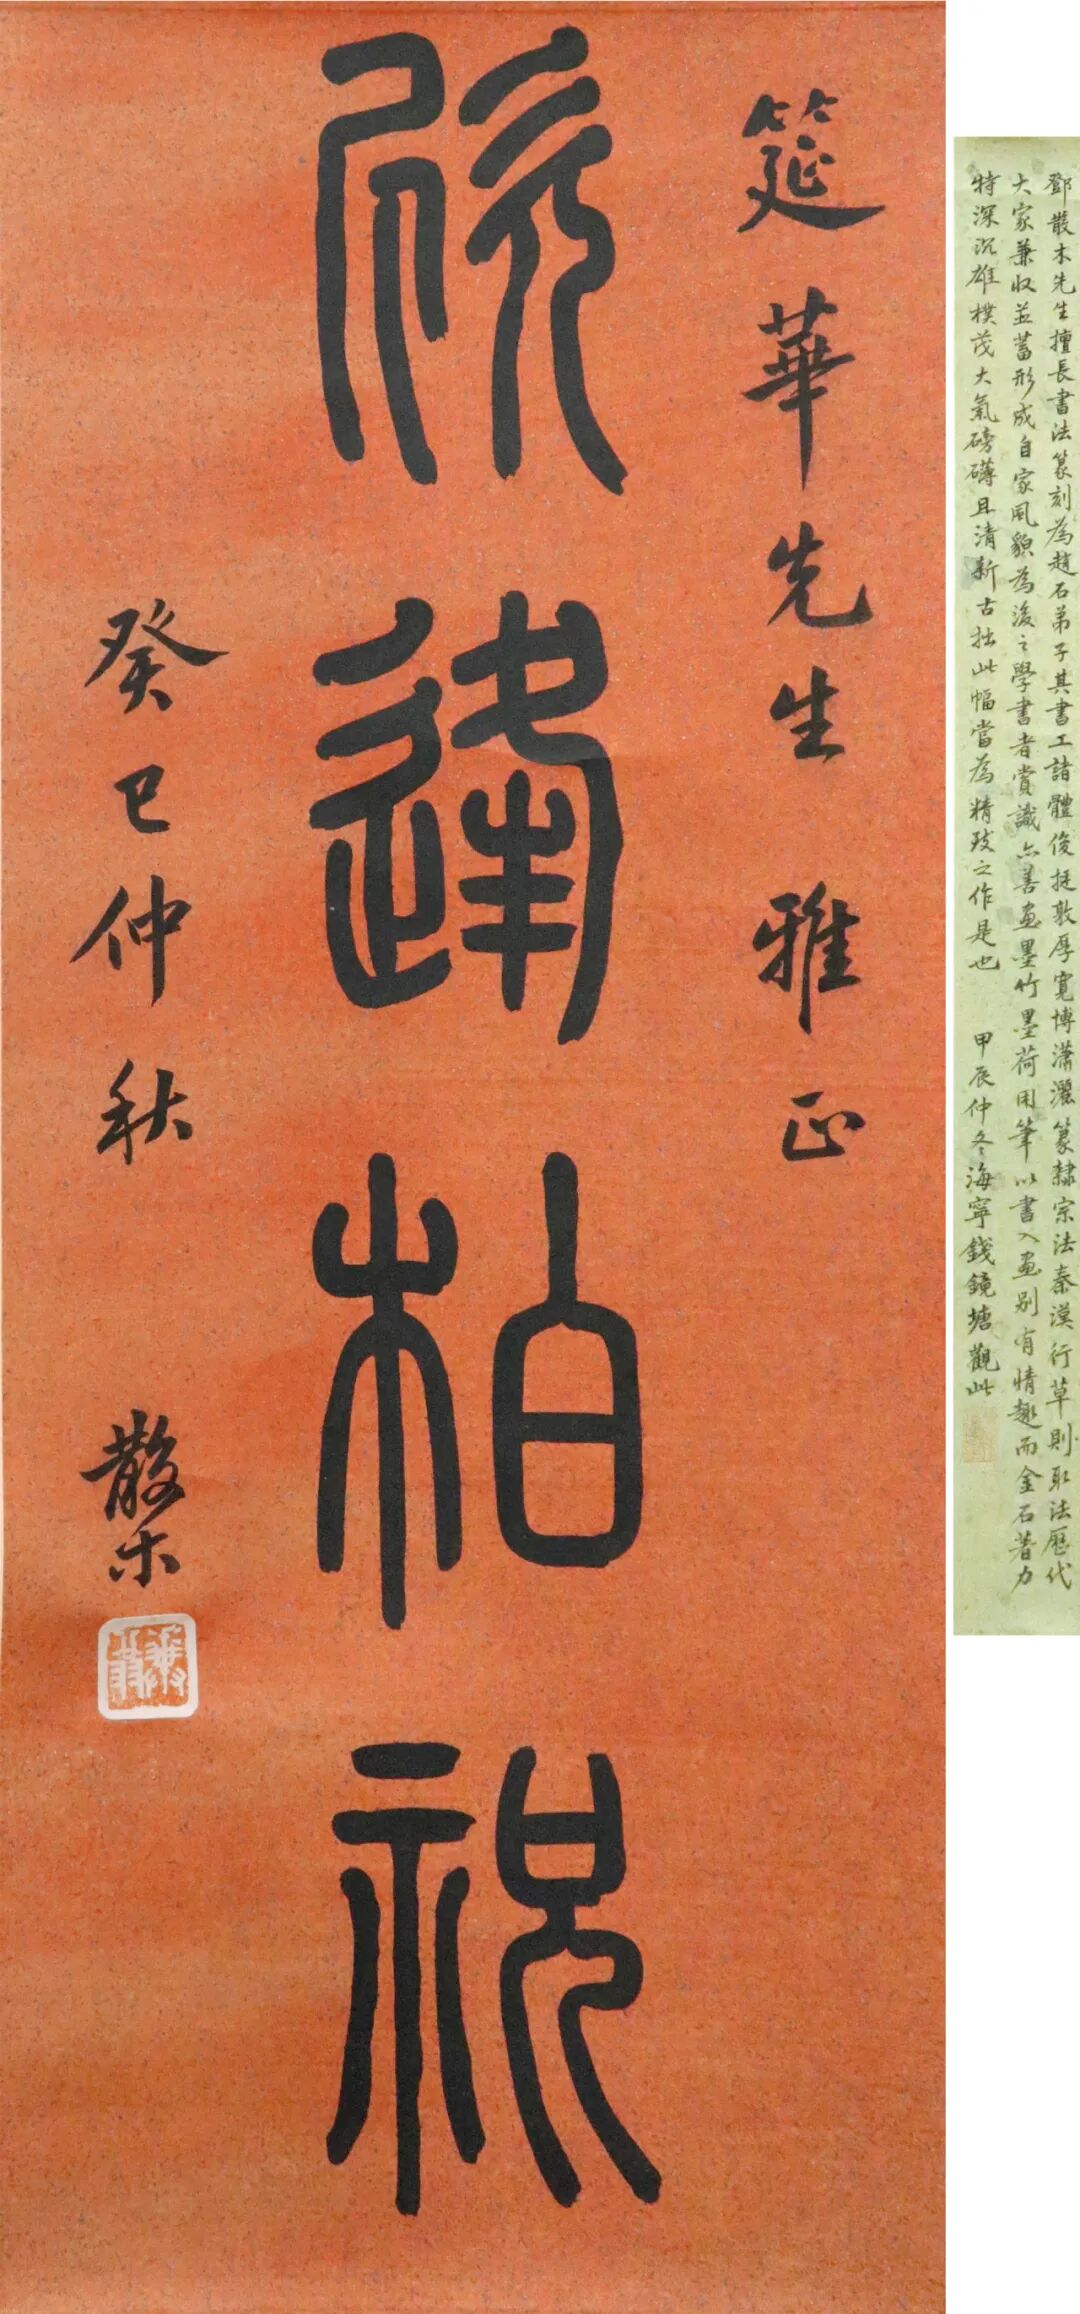 鄧散木先生擅長書法篆刻為趙石弟子其書工諸體俊挺敦厚寬博瀟灑篆隸宗法秦漢行草則取法歷代
大家兼收並蓄形成自家風貌為後之學書者賞識亦善画墨竹墨荷用筆以書入画别有情趣而金石著力
特深沉雄樸茂大氣磅礴且清新古拙此幅當為精致之作是也 甲辰仲冬海寧錢鏡塘觀此
筵華先生雅正
欣逢柏祝
癸巳仲秋 散木